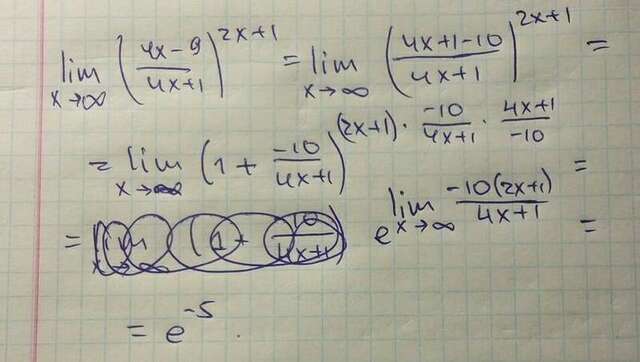 lim x→∞ ((4x-9)/(4x+1))^(2x+1) = lim x→∞ ((4x+1-10)/(4x+1))^(2x+1) =
= lim x→∞ (1 + (-10)/(4x+1))^((2x+1) · (-10)/(4x+1) · (4x+1)/(-10)) =
= e^(lim x→∞ (-10(2x+1))/(4x+1)) =
= e^(-5).